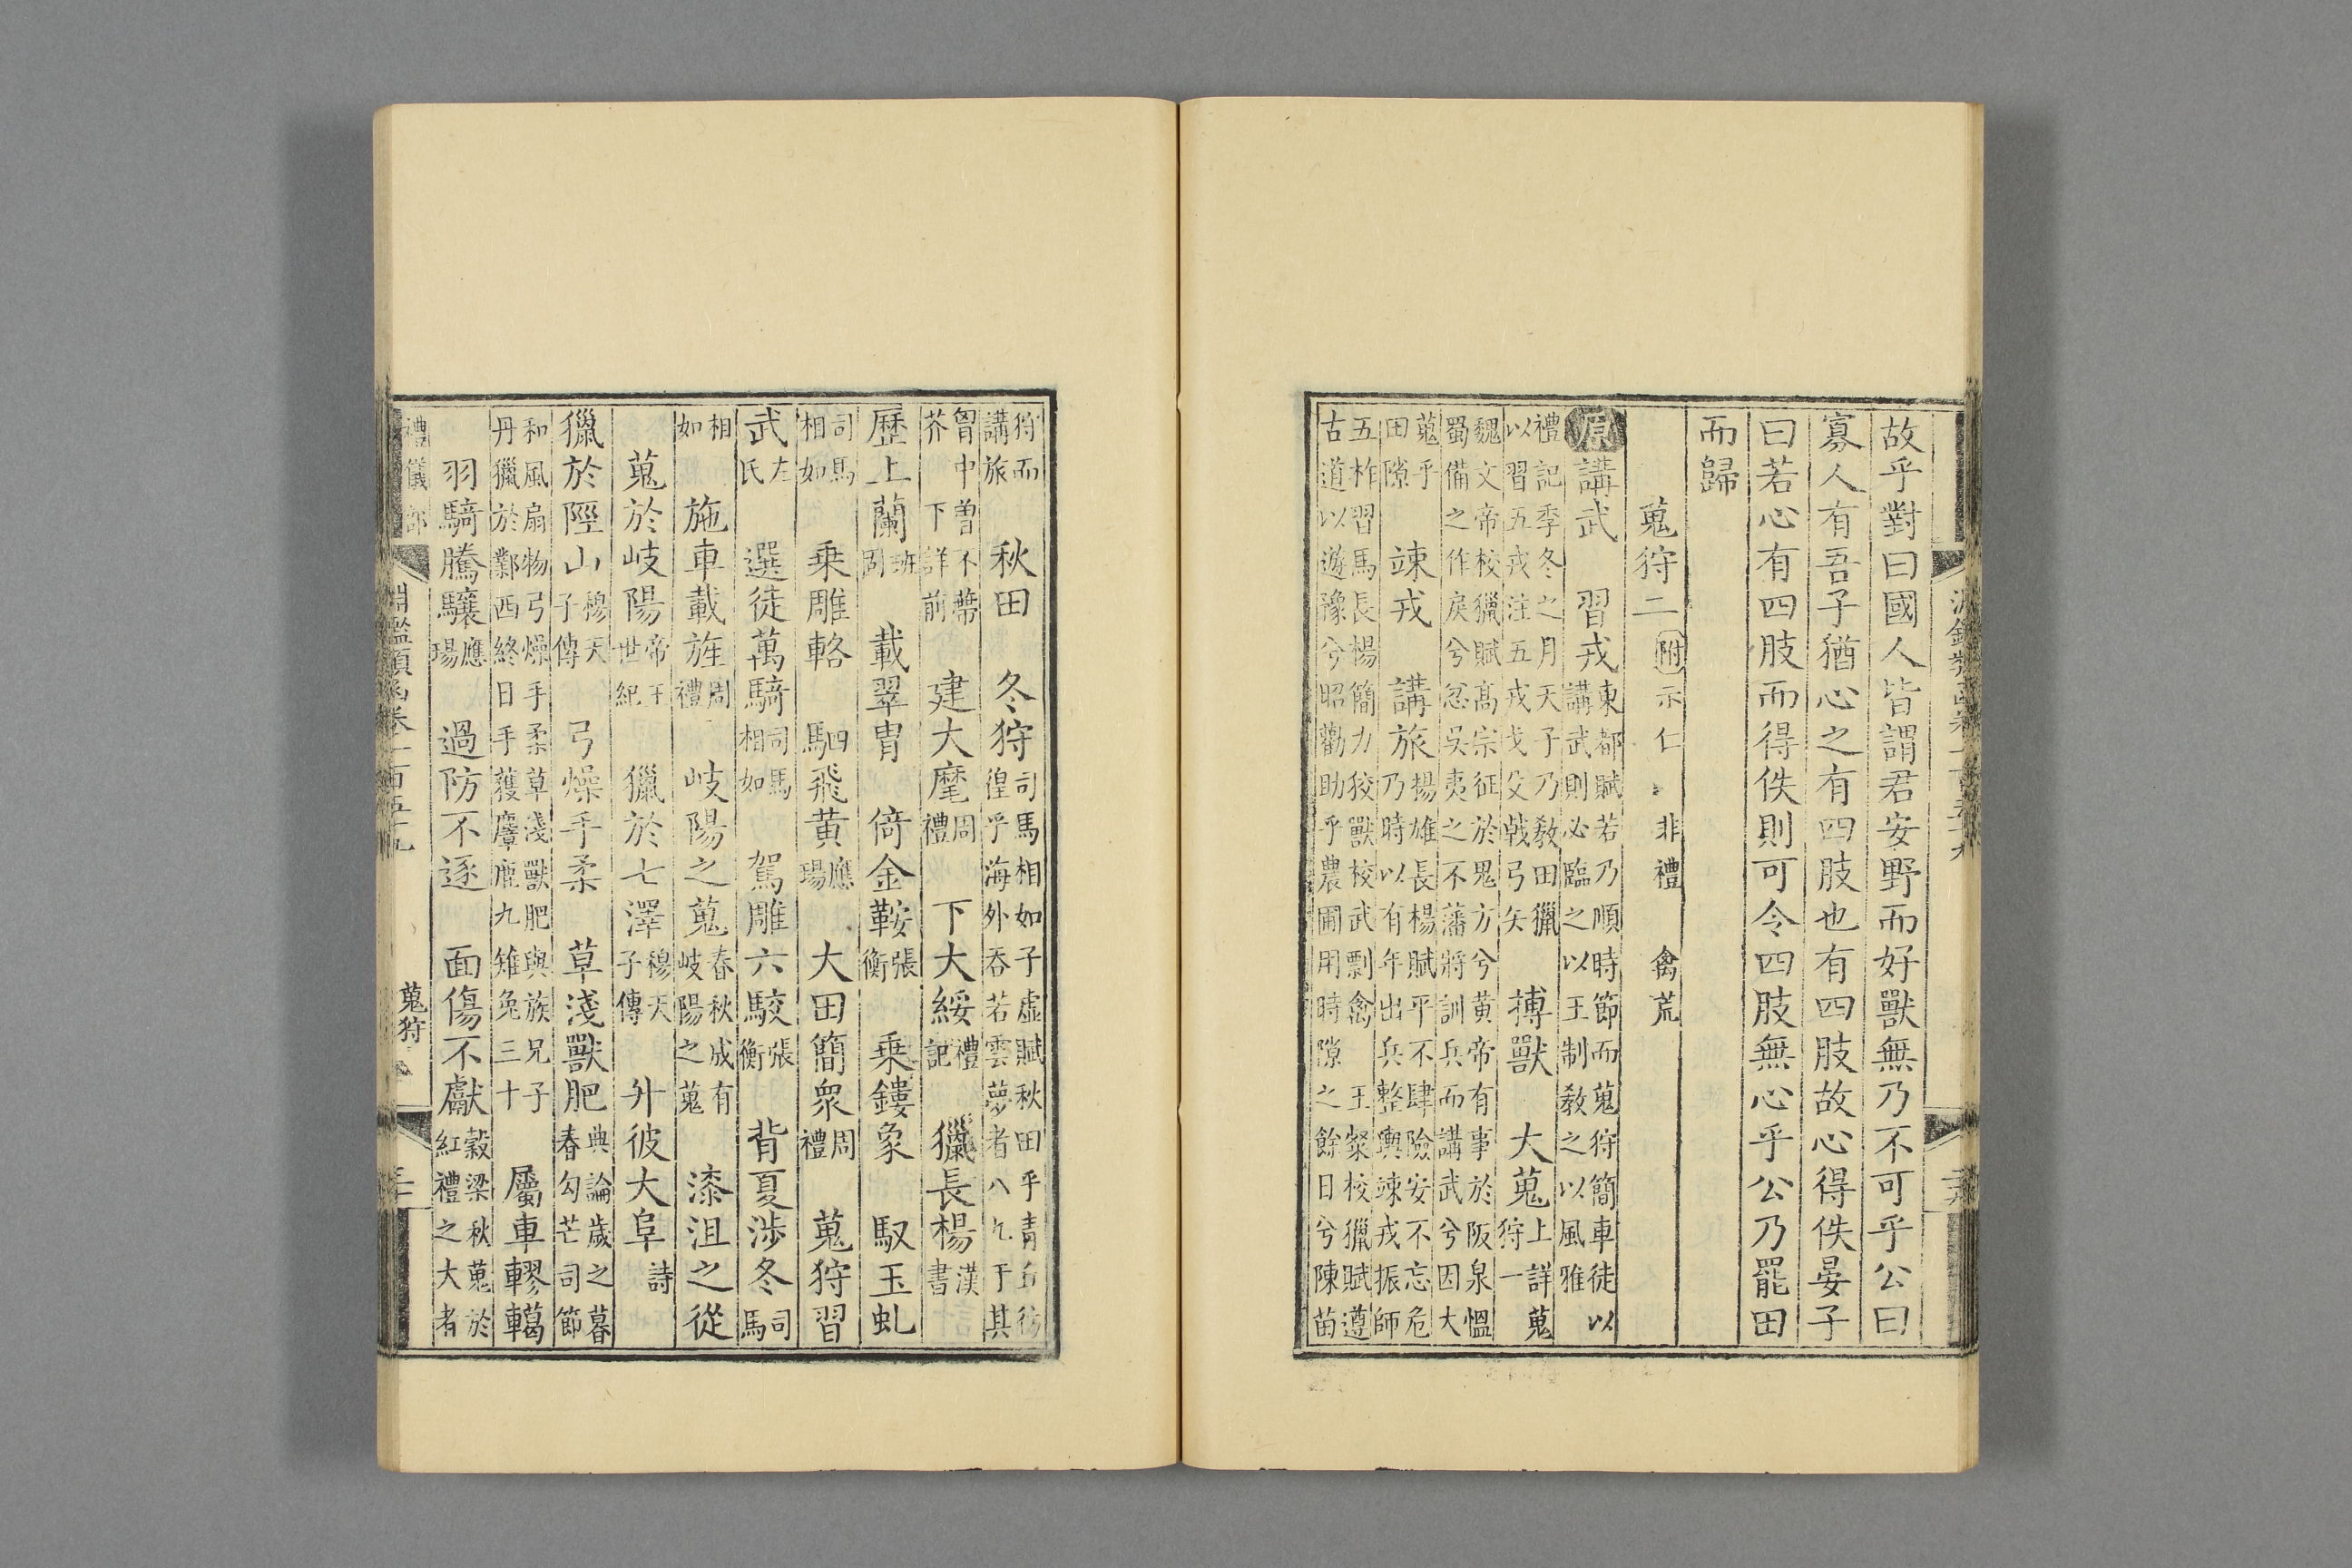 故乎對曰國人皆謂君安野而好獸無乃不可乎公曰
寡人有吾子猶心之有四肢也有四肢故心得佚晏子
曰若心有四肢而得佚則可令四肢無心乎公乃罷田
而歸
蒐狩二 附 示仁 非禮 禽荒
原 講武 習戎 東都賦若乃順時節而蒐狩簡車徒以
講武則必臨之以王制敎之以風雅
禮記季冬之月天子乃敎田獵
以習五戎注五戎戈殳戟弓矢 搏獸 大蒐 上詳蒐
狩一
魏文帝校獵賦高宗征於鬼方兮黃帝有事於阪泉慍
蜀備之作戾兮忿吳夷之不藩將訓兵而講武兮因大
蒐乎
田隙 竦戎 講旅 揚雄長楊賦平不肆險安不忘危
乃時以有年出兵整輿竦戎振師
五柞習馬長楊簡力狡獸校武剽禽 王粲校獵賦遵
古道以遊豫兮昭勸助乎農圃用時隙之餘日兮陳苗
狩而
講旅 秋田 冬狩 司馬相如子虛賦秋田乎青丘彷
徨乎海外吞若雲夢者八九于其
胷中曽不蔕
芥 下詳前 建大麾 周禮 下大綏 禮記 獵長楊 漢書
歷上蘭 班固 載翠冑 倚金鞍 張衡 乗鏤象 馭玉虬
司馬
相如 乗雕輅 駟飛黃 應瑒 大田簡衆 周禮 蒐狩習
武 左氏 選徒萬騎 司馬相如 駕雕六駮 張衡 背夏涉冬 司馬
相如 施車載旌 周禮 岐陽之蒐 春秋成有
岐陽之蒐 漆沮之從
蒐於岐陽 帝王世紀 獵於七澤 穆天子傳 升彼大阜 詩
獵於陘山 穆天子傳 弓燥手柔 草淺獸肥 典論歲之暮
春勾芒司節
和風扇物弓燥手柔草淺獸肥與族兄子
丹獵於鄴西終日手獲麞鹿九雉兔三十 屬車轇轕
羽騎騰驤 應瑒 過防不逐 面傷不獻 穀梁秋蒐於
紅禮之大者
禮儀部 淵鑑類函卷一百五十九 蒐狩